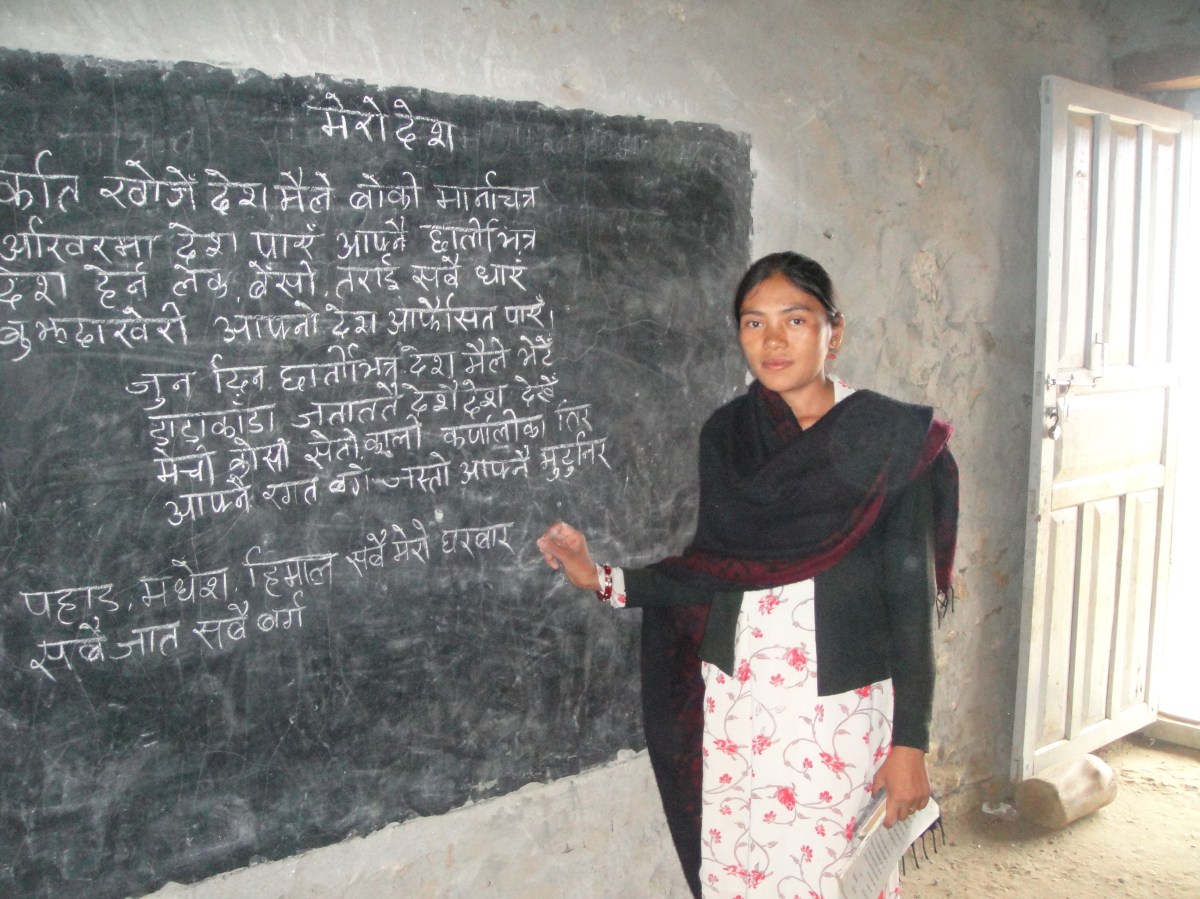 मेरो देश
कति खोजें देश मैले बोकी मानचित्र
आखिरमा देश पाएँ आफ्नै छातीभित्र
देश हेर्न लेक, बेंसी, तराई सबै धाएँ
बुझ्दाखेरी आफ्नो देश आफैंसित पाएँ।
जुन दिन छातीभित्र देश मैले भेटेँ
डाडाकाडा जताततै देशैदेश देखेँ
मेची कोसी सेतीकाली कर्णालीका तिर
आफ्नै रगत बगे जस्तो आफ्नै मुटुनिर
पहाड, मधेश, हिमाल सबै मेरो घरबार
सबै जात सबै बर्ग